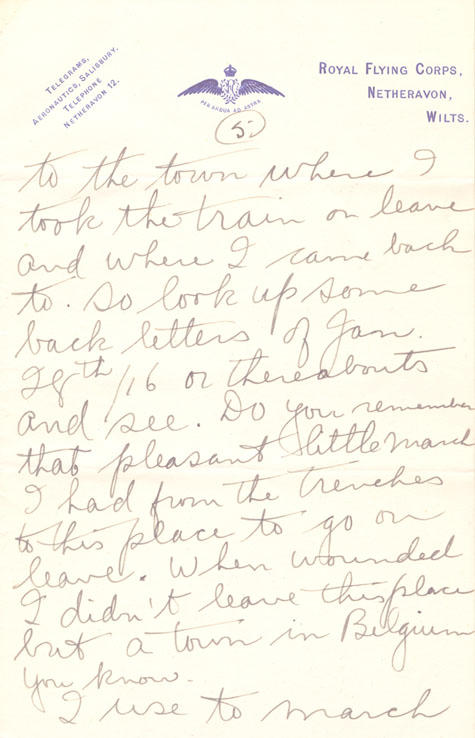 TELEGRAMS,
AERONAUTICS, SALISBURY.
TELEPHONE
NETHERAVON 12.
PER ARDUA AD ASTRA
ROYAL FLYING CORPS,
NETHERAVON,
WILTS.
5
to the town where I
took the train on leave
and where I came back
to. So look up some
back letters of Jan.
28th/16 or thereabouts
and see. Do you remember
that pleasant little march
I had from the trenches
to this place to go on
leave. When wounded
I didn't leave this place
but a town in Belgium
you know.
I use to march